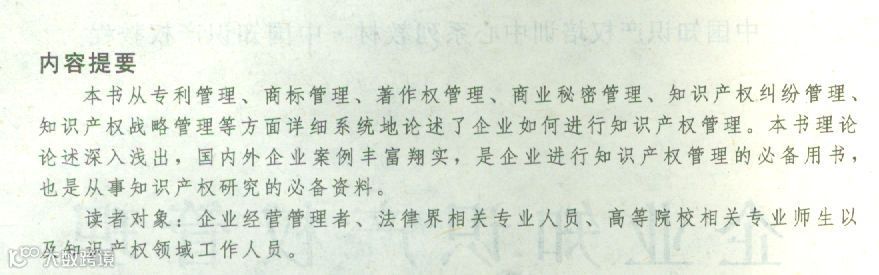 内容提要
本书从专利管理、商标管理、著作权管理、商业秘密管理、知识产权纠纷管理、
知识产权战略管理等方面详细系统地论述了企业如何进行知识产权管理。本书理论
论述深入浅出，国内外企业案例丰富翔实，是企业进行知识产权管理的必备用书，
也是从事知识产权研究的必备资料。
读者对象：企业经营管理者、法律界相关专业人员、高等院校相关专业师生以
及知识产权领域工作人员。